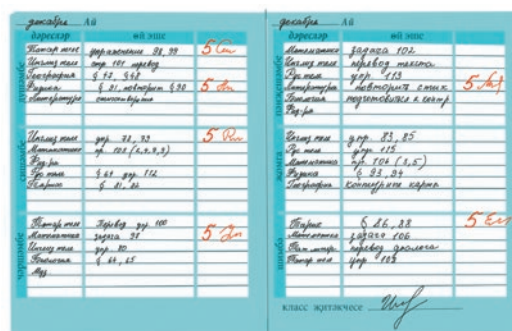 декабрь Ай
дәресләр өй эше
дүшәмбе
Татар теле упражнение 98, 99 5
Инглиз теле стр 101 перевод
География § 47, § 48
Физика § 21, повторить § 20 5
Литература стихотворение
сишәмбе
Инглиз теле упр. 72, 73 5
Математика пр. 103 (2,4,3,9)
Физ-ра
Рус теле § 61 упр. 112
Тарих § 81, 82
чәршәмбе
Татар теле Перевод упр. 100 5
Математика задача 98
Инглиз теле упр. 80
Биология § 64, 65
Муз
декабрь Ай
дәресләр өй эше
пәнҗешәмбе
Математика задача 102
Инглиз теле перевод текста
Рус теле упр. 113 5
Литература повторить стих
Биология подготовиться к контр
Физ-ра
җомга
Инглиз теле упр. 83, 85
Рус теле упр. 115
Математика пр. 106 (3,5)
Физика § 23, 24
География контурные карты
шимбә
Тарих § 86, 88 5
Математика задача 106
Тат. литер. перевод диалога
Татар теле упр 102
класс җитәкчесе